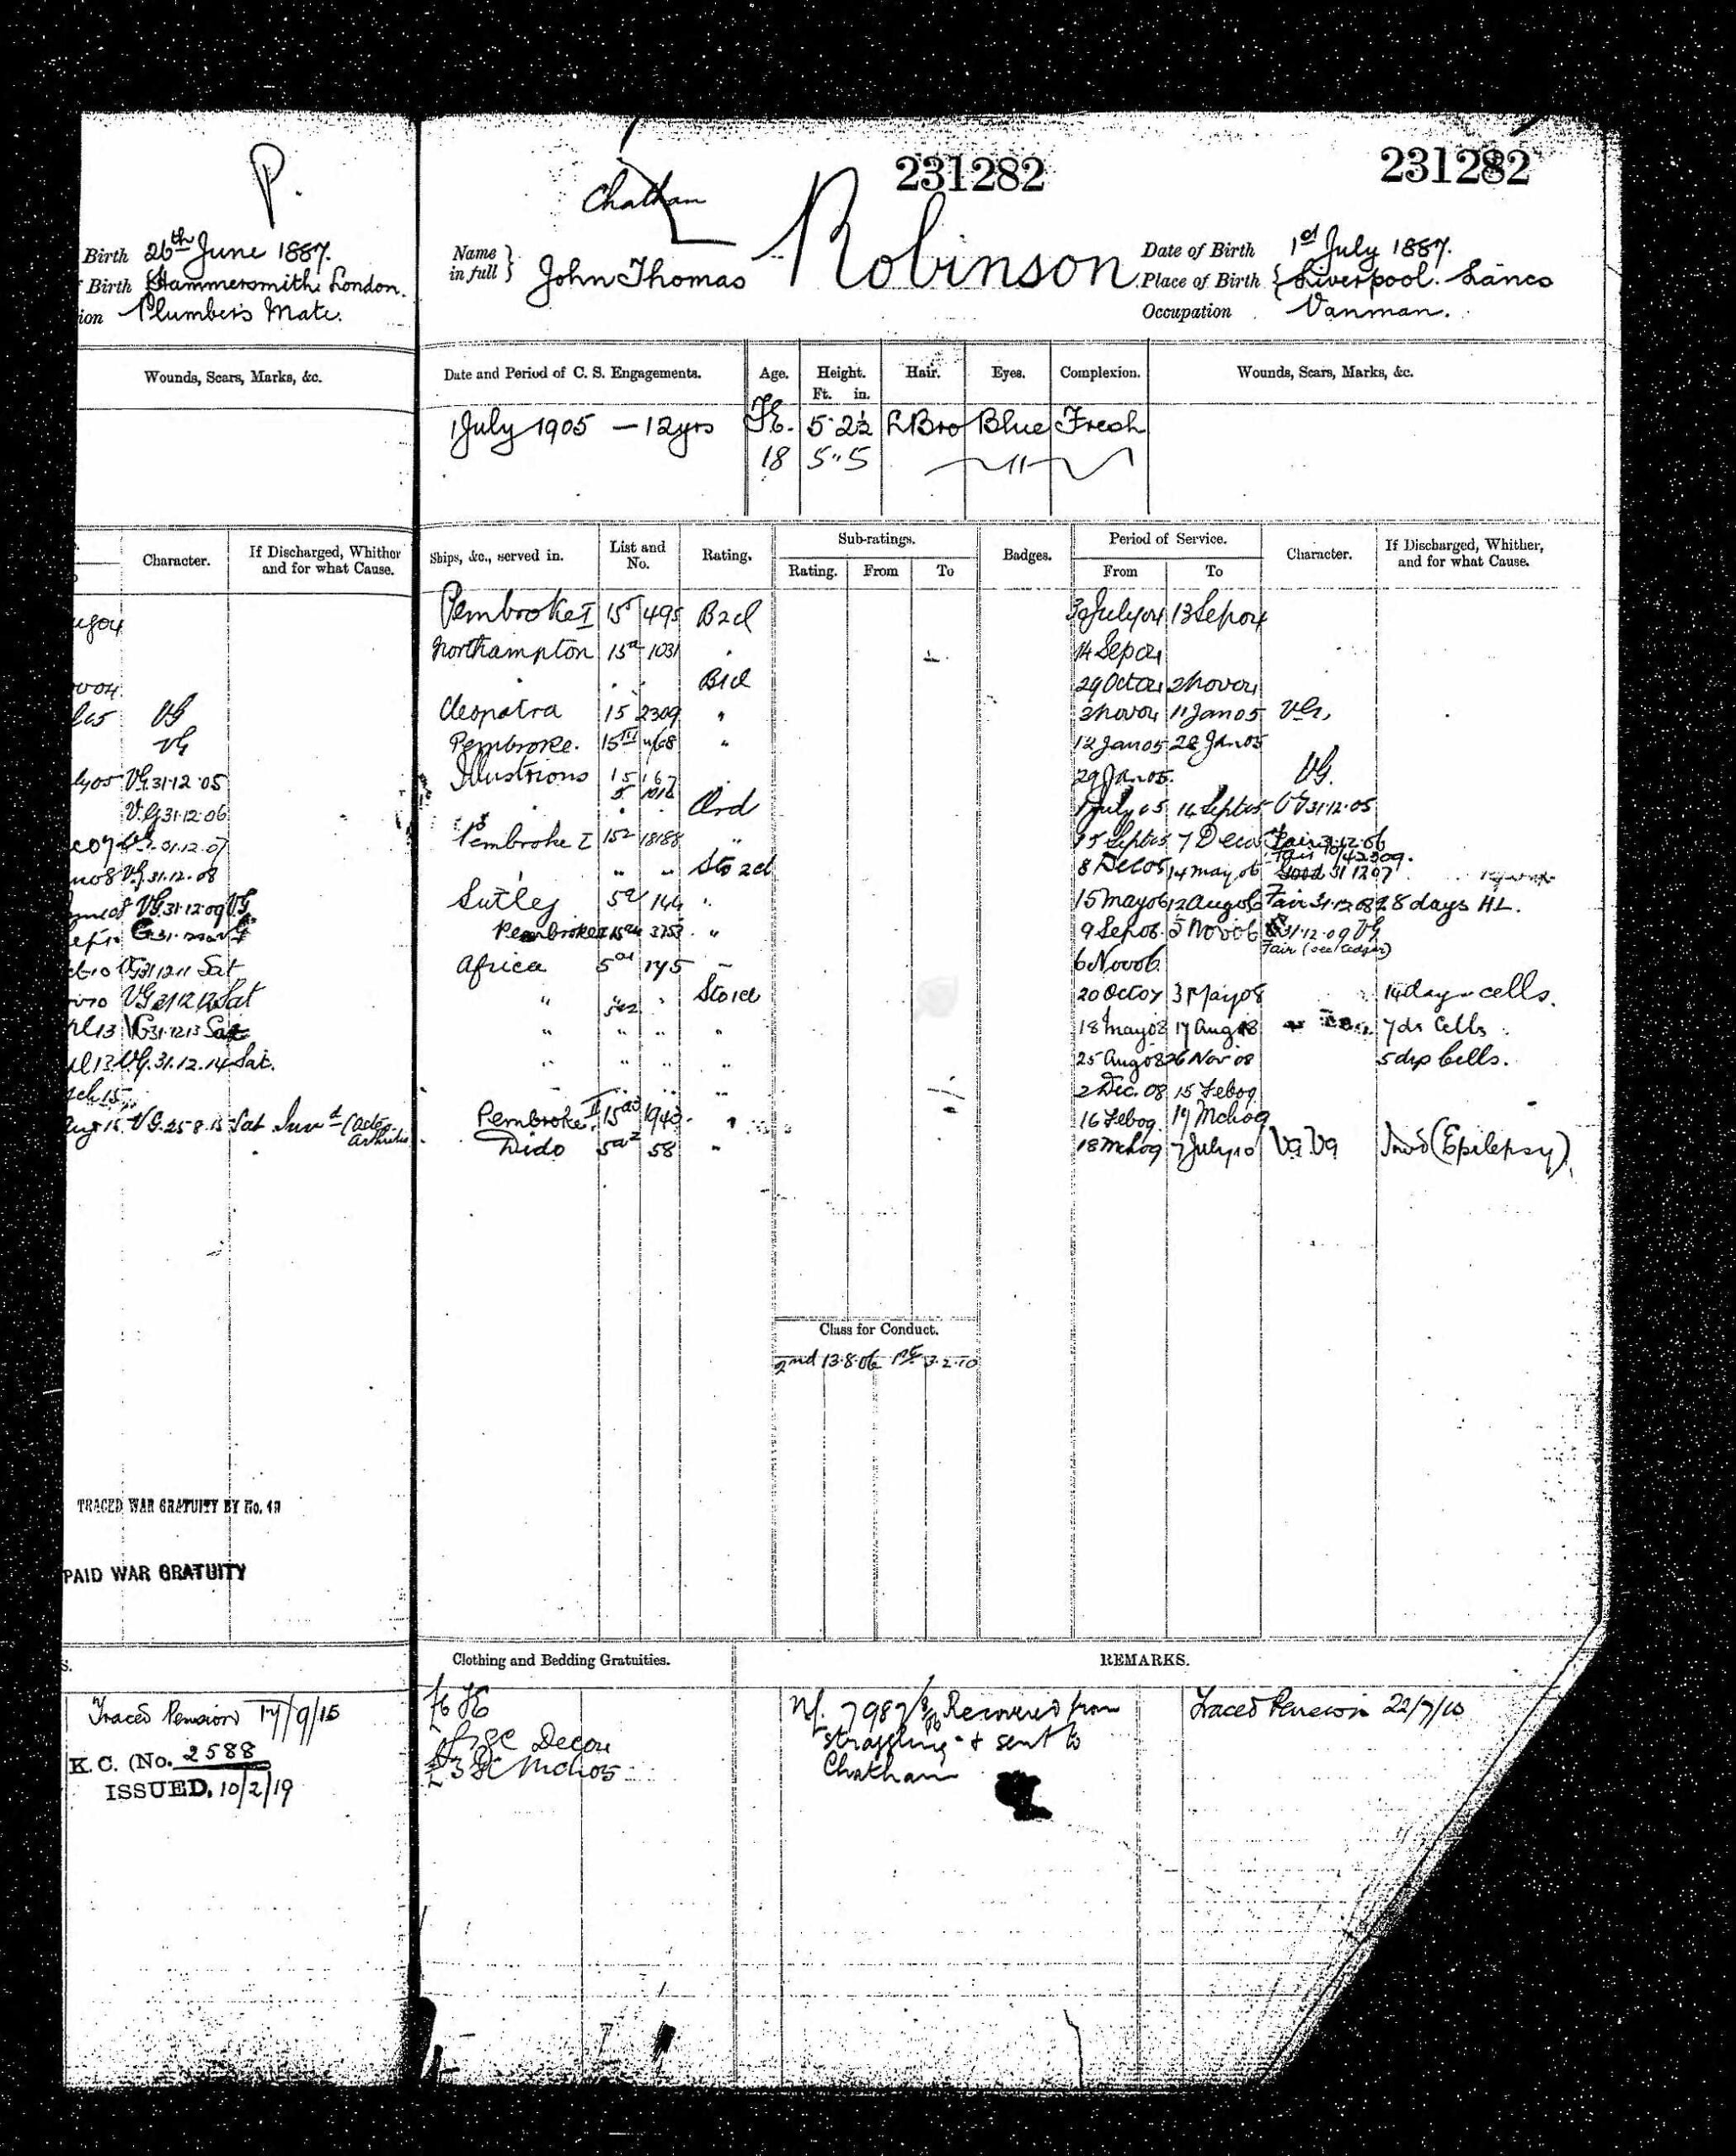 P.
Birth 26th June 1887.
Birth Hammersmith London.
ion Plumber's Mate.
Wounds, Scars, Marks, &c.
Character. If Discharged, Whither and for what Cause.
VG
VG
VG 31.12.05
V.G 31.12.06
31.12.07
VG 31.12.08
VG 31.12.09 VG
VG 31 12 11 Sat
VG 31 12 12 Sat
VG 31.12.13 Sat
VG. 31.12.14 Sat.
VG. 25.8.15 Sat
TRACED WAR GRATUITY BY No.
PAID WAR GRATUITY
Traced Pension 17/9/15
K. C. (No. 2588
ISSUED. 10/2/19
Chatham 231282 231282
Name in full } John Thomas Robinson
Date of Birth 1st July 1887.
Place of Birth { Liverpool. Lancs
Occupation Vanman.
Date and Period of C. S. Engagements. Age. Height. Ft. in. Hair. Eyes. Complexion. Wounds, Scars, Marks, &c.
1 July 1905 — 12 yrs 5·2½ L Bro Blue Fresh
18 5"5 "
Ships, &c., served in. List and No. Rating. Sub-ratings. Badges. Period of Service. Character. If Discharged, Whither, and for what Cause.
Rating. From To From To
Pembroke I 15 495 B2cl 30 July 04 13 Sep 04
Northampton 15a 1031 14 Sep 04
B1cl 29 Oct 04 2 Nov 04
Cleopatra 15 2309 " 3 Nov 04 11 Jan 05 VG.
Pembroke. 15III " 12 Jan 05 28 Jan 05
Illustrious 15 167 29 Jan 05 VG.
Ord 1 July 05 14 Sept 05 VG 31.12.05
Pembroke I 15 2 18188 " 15 Sept 05 7 Dec 05 Fair 31.12.06
" " Sto 2cl 8 Dec 05 14 May 06 Good 31 12 07
Sutlej 5a 144 " 15 May 06 12 Aug 06 Fair 31.12.08 28 days HL.
Pembroke 3753 " 9 Sep 06 5 Nov 06 31.12.09 VG
Africa 5a1 175 – 6 Nov 06
" 5a2 Sto 1cl 20 Oct 07 3 May 08 14 days cells.
" " " 18 May 08 17 Aug 08 7 ds Cells
" " " " 25 Aug 08 26 Nov 08 5 dys Cells.
2 Dec. 08 15 Feb 09
Pembroke II 1940 " 16 Feb 09 17 Mch 09
Dido 5a2 58 " 18 Mch 09 7 July 10 VG VG Invd (Epilepsy)
Class for Conduct.
2nd 13.8.06 1st 3.2.10
Clothing and Bedding Gratuities. REMARKS.
Recovered from
straggling & sent to
Chatham
Traced Pension 22/7/10